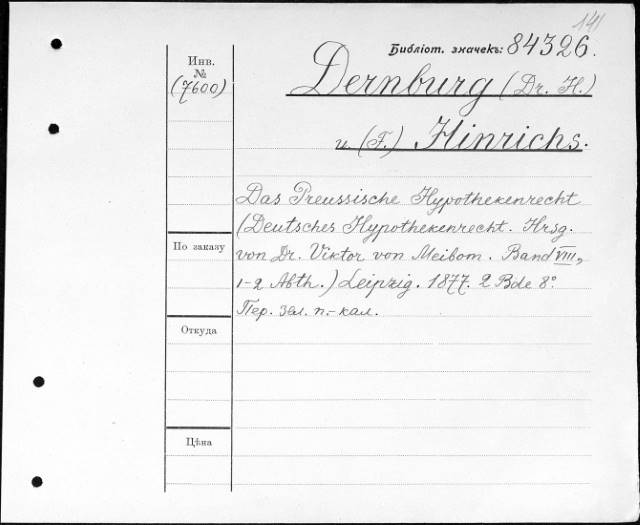 141
Библіот. значекъ: 84326.
Инв.
№
(7600)
Dernburg (Dr. H.)
u. (F.) Hinrichs.
Das Preussische Hypothekenrecht
(Deutsches Hypothekenrecht. Hrsg.
По заказу
von Dr. Viktor von Meibom. Band VIII,
1-2 Abth.) Leipzig. 1877. 2 Bde 8º
Пер. зел. п.-кал.
Откуда
Цѣна